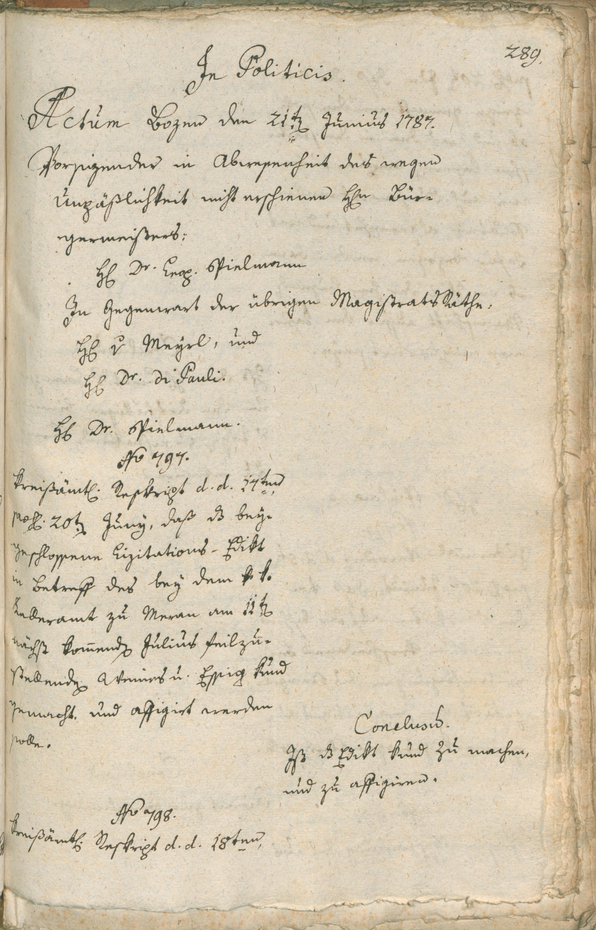 289.
In Politicis.
Actum Bozen den 21t Junius 1787.
Vorsizender in Abwesenheit des wegen
Unpäßlichkeit nicht erschienen Hn Bür-
germeisters:
H: Dr. Leop. Spielmann
In Gegenwart der übrigen Magistrats Räthe.
H: v Meyrl, und
H: Dr. Di Pauli.
H: Dr. Spielmann.
No 797.
Kreißämtl: Reskript d. d. 17ten,
20t Juny, daß das bey-
geschlossene Lizitations-Edikt
in Betreff des bey dem k. k.
Kelleramt zu Meran am 11t
nächst kommend Julius feilzu-
stellenden Weines u. Essig kund
gemacht, und affigirt werden
solle.
Conclusum.
Ist das Edikt kund zu machen,
und zu affigiren.
No 798.
Kreißämtl: Reskript d. d. 18ten,